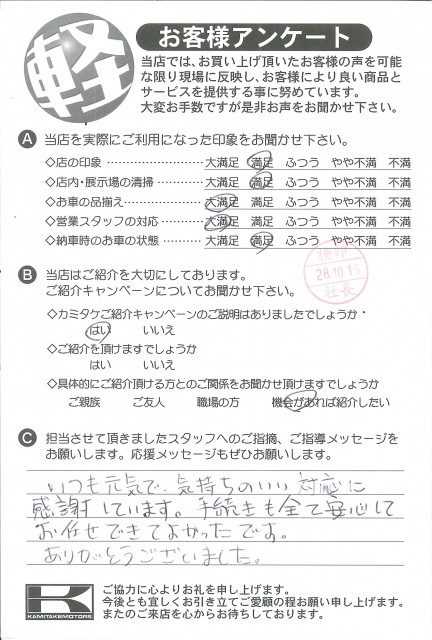 軽
お客様アンケート
当店では、お買い上げ頂いたお客様の声を可能
な限り現場に反映し、お客様により良い商品と
サービスを提供する事に努めています。
大変お手数ですが是非お声をお聞かせ下さい。
A 当店を実際にご利用になった印象をお聞かせ下さい。
◇店の印象 ………………… 大満足 満足 ふつう やや不満 不満
◇店内・展示場の清掃 ………… 大満足 満足 ふつう やや不満 不満
◇お車の品揃え ……………… 大満足 満足 ふつう やや不満 不満
◇営業スタッフの対応 ………… 大満足 満足 ふつう やや不満 不満
◇納車時のお車の状態 ………… 大満足 満足 ふつう やや不満 不満
28.10.15
社長
B 当店はご紹介を大切にしております。
ご紹介キャンペーンについてお聞かせ下さい。
◇カミタケご紹介キャンペーンのご説明はありましたでしょうか
はい いいえ
◇ご紹介を頂けますでしょうか
はい いいえ
◇具体的にご紹介頂ける方とのご関係をお聞かせ頂けますでしょうか
ご親族 ご友人 職場の方 機会があれば紹介したい
C 担当させて頂きましたスタッフへのご指摘、ご指導メッセージを
お願いします。応援メッセージもぜひお願いします。
いつも元気で、気持ちのいい対応に
感謝しています。手続きも全て安心して
お任せできてよかったです。
ありがとうございました。
K
KAMITAKEMOTORS
ご協力に心よりお礼を申し上げます。
今後とも宜しくお引き立てご愛顧の程お願い申し上げます。
またのご来店を心からお待ちしております。